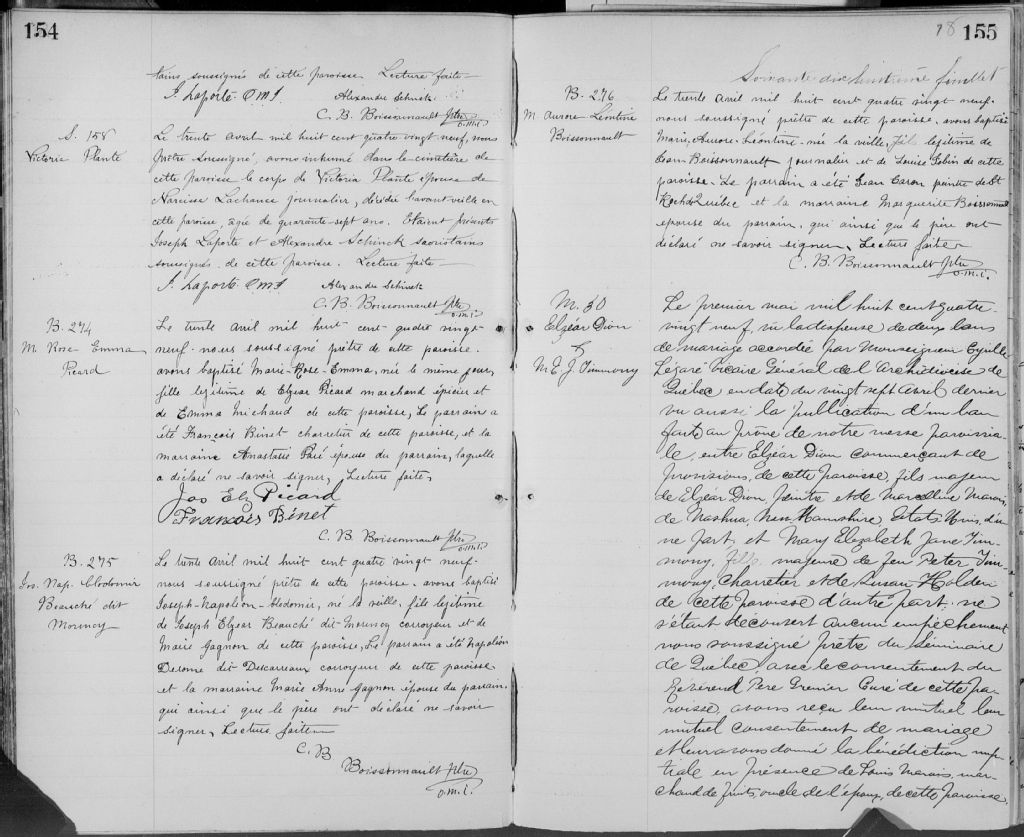 154
tains soussignés de cette paroisse. Lecture faite
J. Laporte O.M.I Alexandre Schinck
C. B. Boissonnault Ptre
o.m.i.
S. 158
Victoria Plante
Le trente avril mil huit cent quatre vingt neuf, nous
prêtre soussigné, avons inhumé dans le cimetière de
cette paroisse le corps de Victoria Plante épouse de
Narcisse Lachance journalier, décédée l'avant-veille en
cette paroisse, agée de quarante-sept ans. Etaient présents
Joseph Laporte et Alexandre Schinck sacristains
soussignés de cette paroisse. Lecture faite
J. Laporte O M I Alexandre Schinck
C. B. Boissonnault Ptre
o.m.i.
B. 274
M. Rose Emma
Picard
Le trente avril mil huit cent quatre vingt
neuf nous soussigné prêtre de cette paroisse.
avons baptisé Marie-Rose-Emma, née le même jour,
fille legitime de Elzear Picard marchand épicier et
de Emma Michaud de cette paroisse, Le parrain a
été François Binet charretier de cette paroisse, et la
marraine Anastasie Paré epouse du parrain, laquelle
a déclaré ne savoir signer, Lecture faite,
Jos Elz Picard
François Binet
C. B. Boissonnault Ptre
o.m.i.
B. 275
Jos. Nap. Clodomir
Beauché dit
Morency
Le trente avril mil huit cent quatre vingt neuf
nous soussigné prêtre de cette paroisse avons baptisé
Joseph-Napoléon-Clodomir, né la veille, fils legitime
de Joseph Elzear Beauché dit Morency corroyeur et de
Marie Gagnon de cette paroisse, Le parrain a été Napoléon
Derome dit Descarreaux corroyeur de cette paroisse
et la marraine Marie Anne Gagnon épouse du parrain,
qui ainsi que le père ont déclaré ne savoir
signer, Lecture faite
C. B
Boissonnault Ptre
o.m.i.
78 155
Soixante dix huitième feuillet
B. 276
M. Aurore Léontine
Boissonnault
Le trente avril mil huit cent quatre vingt neuf
nous soussigné prêtre de cette paroisse, avons baptisé
Marie, Aurore-Léontine, née la veille, fils legitime de
Jean Boissonnault journalier et de Louise Gobin de cette
paroisse. Le parrain a été Jean Caron peintre de St
Roch de Québec et la marraine Marguerite Boissonnault
epouse du parrain, qui ainsi que le père ont
déclaré ne savoir signer, Lecture faite
C. B. Boissonnault Ptre
o.m.i.
M. 30
Elzéar Dion
&
M. E. J. Timmony
Le premier mai mil huit cent quatre
vingt neuf, vu la dispense de deux bans
de mariage accordée par Monseigneur Cyrille
Légaré Vicaire Général de l'Archidiocèse de
Québec en date du vingt sept Avril dernier
vu aussi la publication d'un ban
faite au prône de notre messe paroissia-
le, entre Elzéar Dion commerçant de
provisions, de cette paroisse, fils majeur
de Elzéar Dion, peintre et de Marcelline Marois,
de Nashua, New Hampshire, Etats Unis, d'u-
ne part, et Mary Elizabeth Jane Tim-
mony, fille majeure de feu Peter Tim-
mony, charretier et de Susan Holden
de cette paroisse d'autre part; ne
s'étant découvert aucun empêchement
nous soussigné prêtre du Séminaire
de Québec, avec le consentement du
Révérend Père Grenier Curé de cette pa-
roisse, avons reçu leur mutuel leur
mutuel consentement de mariage
et leur avons donné la bénédiction nup-
tiale en présence de Louis Marois, mar-
chand de fruits, oncle de l'époux, de cette paroisse,